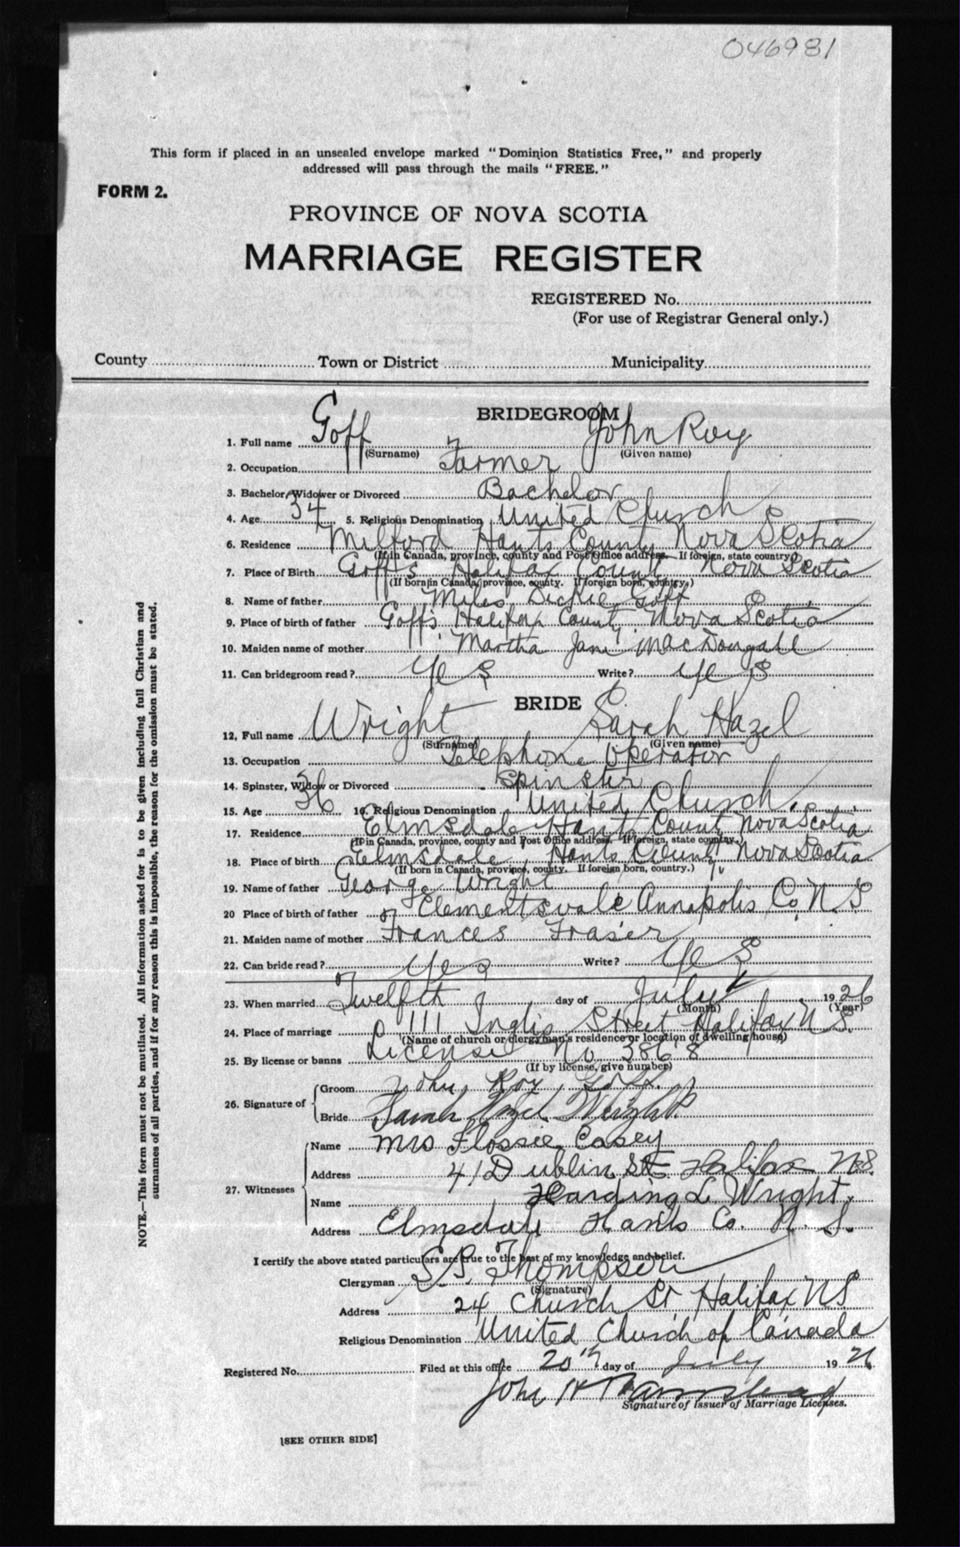 046981
This form if placed in an unsealed envelope marked "Dominion Statistics Free," and properly
addressed will pass through the mails "FREE."
FORM 2.
PROVINCE OF NOVA SCOTIA
MARRIAGE REGISTER
REGISTERED No.
(For use of Registrar General only.)
County Town or District Municipality
BRIDEGROOM
1. Full name Goff John Roy
(Surname) (Given name)
2. Occupation Farmer
3. Bachelor, Widower or Divorced Bachelor
4. Age 34 5. Religious Denomination United Church
6. Residence Milford Hants County Nova Scotia
(If in Canada, province, county and Post Office address. If foreign, state country.)
7. Place of Birth Goffs Halifax County Nova Scotia
(If born in Canada, province, county. If foreign born, country.)
8. Name of father Miles Dickie Goff
9. Place of birth of father Goffs Halifax County Nova Scotia
10. Maiden name of mother Martha Jane MacDougall
11. Can bridegroom read? Yes Write? Yes
BRIDE
12. Full name Wright Sarah Hazel
(Surname) (Given name)
13. Occupation Telephone Operator
14. Spinster, Widow or Divorced Spinster
15. Age 36 16. Religious Denomination United Church.
17. Residence Elmsdale Hants County Nova Scotia
(If in Canada, province, county and Post Office address. If foreign, state country.)
18. Place of birth Elmsdale, Hants County Nova Scotia
(If born in Canada, province, county. If foreign born, country.)
19. Name of father George Wright
20 Place of birth of father Clementsvale Annapolis Co. N.S
21. Maiden name of mother Frances Fraser
22. Can bride read? Yes Write? Yes
23. When married Twelfth day of July 1926
(Month) (Year)
24. Place of marriage 111 Inglis Street Halifax N.S.
(Name of church or clergyman's residence or location of dwelling house)
25. By license or banns License No 3868
(If by license, give number)
26. Signature of Groom John Roy Goff
Bride Sarah Hazel Wright
27. Witnesses Name Mrs Flossie Casey
Address 41 Dublin St Halifax N.S.
Name Harding L. Wright.
Address Elmsdale Hants Co. N. S.
I certify the above stated particulars are true to the best of my knowledge and belief.
Clergyman Thompson
(Signature)
Address 24 Church St Halifax NS
Religious Denomination United Church of Canada
Registered No. Filed at this office 20th day of July 1926
John H
Signature of Issuer of Marriage Licenses.
[SEE OTHER SIDE]
NOTE.—This form must not be mutilated. All information asked for is to be given including full Christian and
surnames of all parties, and if for any reason this is impossible, the reason for the omission must be stated.